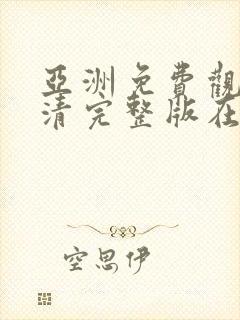 亞洲免費觀
清完整版在
空思伊